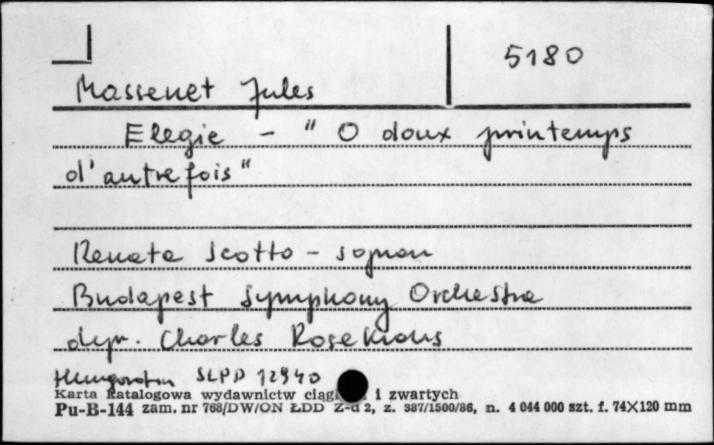 5180
Massenet Jules
Elegie - " O doux printemps
d'autrefois"
Renata Scotto - sopran
Budapest Symphony Orchestra
dyr. Charles Rosekrans
Hungaroton SLPD 12940
Karta katalogowa wydawnictw ciągł i zwartych
Pu-B-144 zam. nr 768/DW/ON ŁDD Z-d 2, z. 387/1500/86, n. 4 044 000 szt. f. 74×120 mm